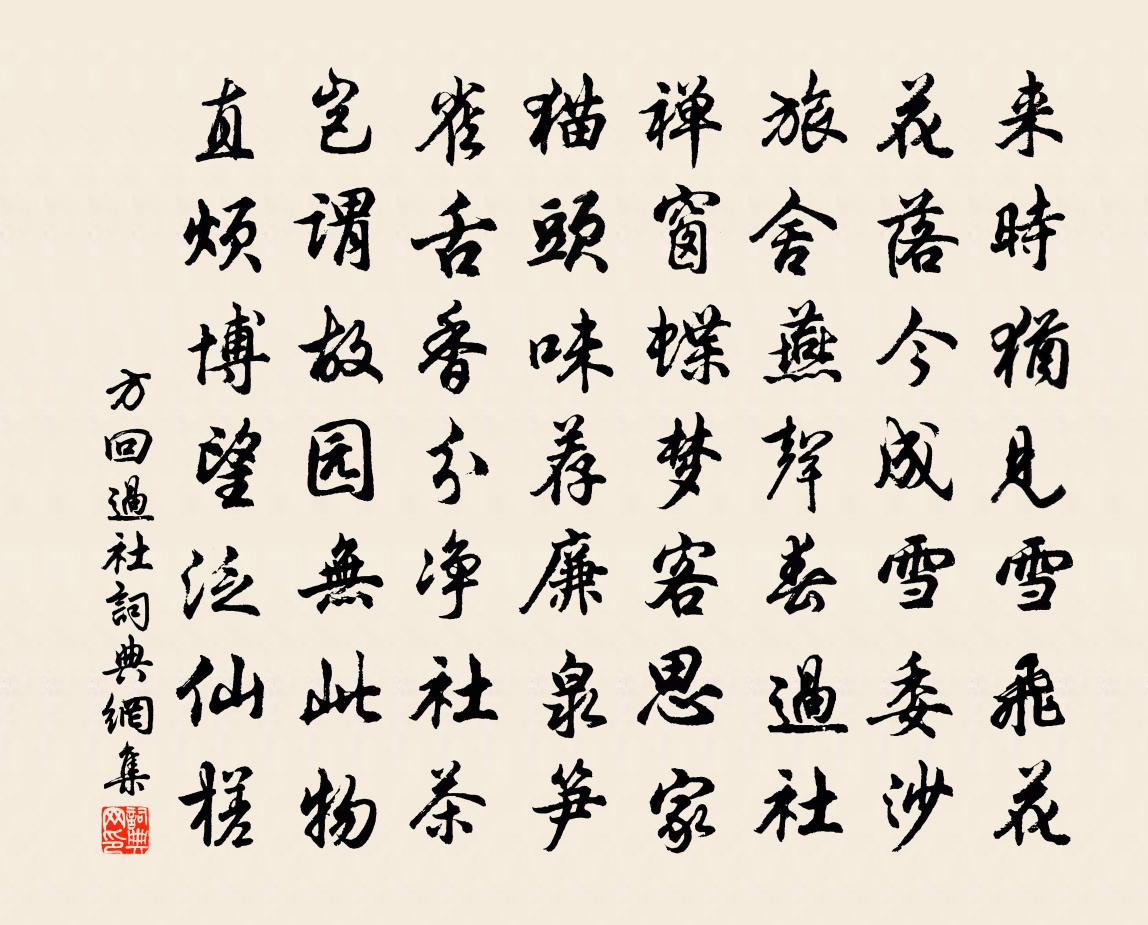 来時猶見雪飛花
花落今成雪委沙
旅舍燕聲春過社
禅窗蝶梦客思家
猫頭味荐廉泉笋
雀舌香分净社茶
岂謂故园無此物
直烦博望泛仙槎
方回過社詞典網集
詞典网印